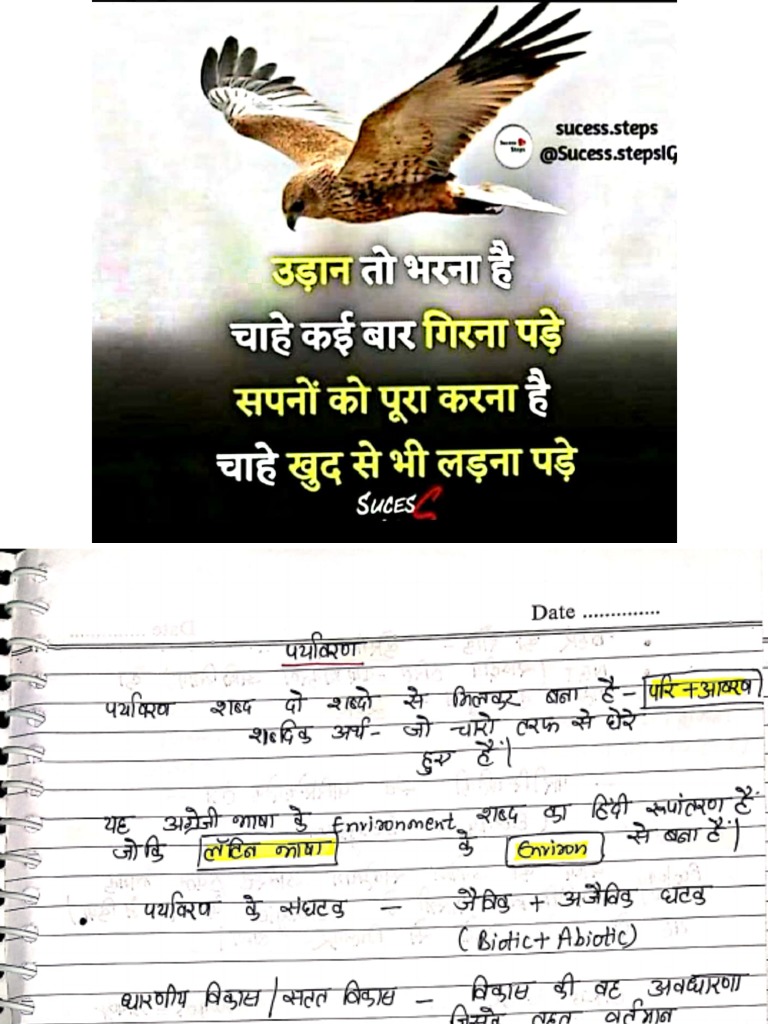 sucess.steps
@Sucess.stepsIG
उड़ान तो भरना है
चाहे कई बार गिरना पड़े
सपनों को पूरा करना है
चाहे खुद से भी लड़ना पड़े
SUCES
Date ..............
पर्यावरण
पर्यावरण शब्द दो शब्दो से मिलकर बना है - परि + आवरण
शाब्दिक अर्थ - जो चारो तरफ से घेरे
हुए हैं।
यह अंग्रेजी भाषा के Environment शब्द का हिंदी रूपांतरण है
जोकि लैटिन भाषा के Environ से बना है।
• पर्यावरण के संघटक – जैविक + अजैविक घटक
(Biotic + Abiotic)
धारणीय विकास / सतत विकास – विकास की वह अवधारणा
जिसके तहत वर्तमान